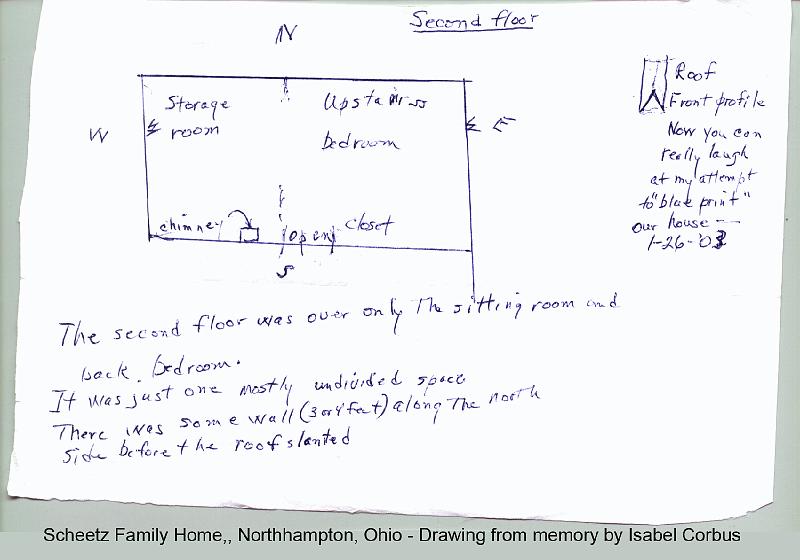 Second floor
N
Storage
room
Upstairs
bedroom
W
E
chimney
open
closet
S
Roof
Front profile
Now you can
really laugh
at my attempt
to "blue print"
our house --
1-26-03
The second floor was over only The sitting room and
back bedroom.
It was just one mostly undivided space
There was some wall (3 or 4 feet) along The north
side before the roof slanted
Scheetz Family Home,, Northhampton, Ohio - Drawing from memory by Isabel Corbus